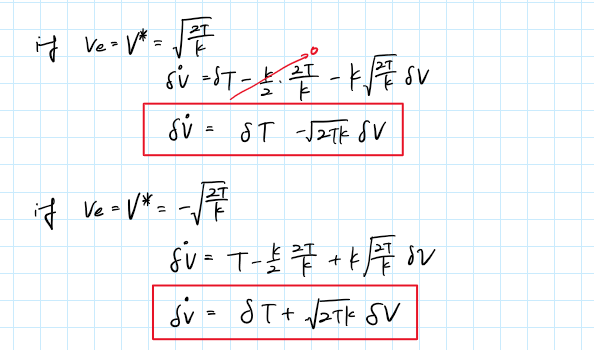 if Ve = V* = √(2T/k)
δv̇ = δT - k/2 · 2T/k → 0 - k√(2T/k) δV
δv̇ = δT - √(2Tk) δV
if Ve = V* = -√(2T/k)
δv̇ = T - k/2 2T/k + k√(2T/k) δV
δv̇ = δT + √(2Tk) δV